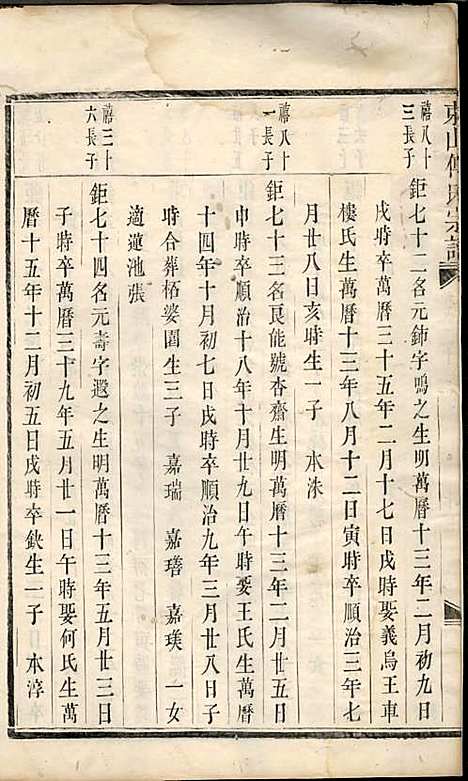 禧八十
三長子
鉅七十二名元鈰字鳴之生明萬曆十三年二月初九日
戌時卒萬曆三十五年二月十七日戌時娶義烏王車
樓氏生萬曆十三年八月十二日寅時卒順治三年七
月廿八日亥時生一子 本洙
禧八十
一長子
鉅七十三名艮能號杏齋生明萬曆十三年二月廿五日
申時卒順治十八年十月廿九日午時娶王氏生萬曆
十四年十月初七日戌時卒順治九年三月廿八日子
時合葬栢婆園生三子 嘉瑞 嘉瑨 嘉璞 一女
適蓮池張
禧三十
六長子
鉅七十四名元壽字遐之生明萬曆十三年五月廿三日
子時卒萬曆三十九年五月廿一日午時娶何氏生萬
曆十五年十二月初五日戌時卒缺生一子 本淳